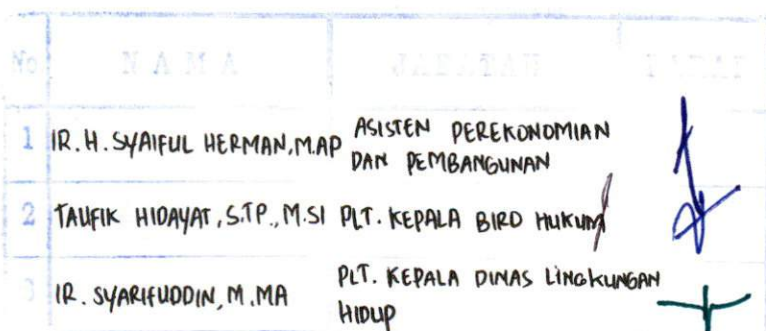 No NAMA JABATAN PARAF
1 IR. H. SYAIFUL HERMAN, M.AP ASISTEN PEREKONOMIAN
DAN PEMBANGUNAN
2 TAUFIK HIDAYAT, S.TP., M.SI PLT. KEPALA BIRO HUKUM
3 IR. SYARIFUDDIN, M.MA PLT. KEPALA DINAS LINGKUNGAN
HIDUP